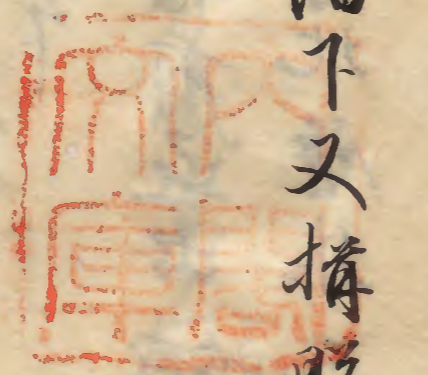 下又揖
内閣
文庫